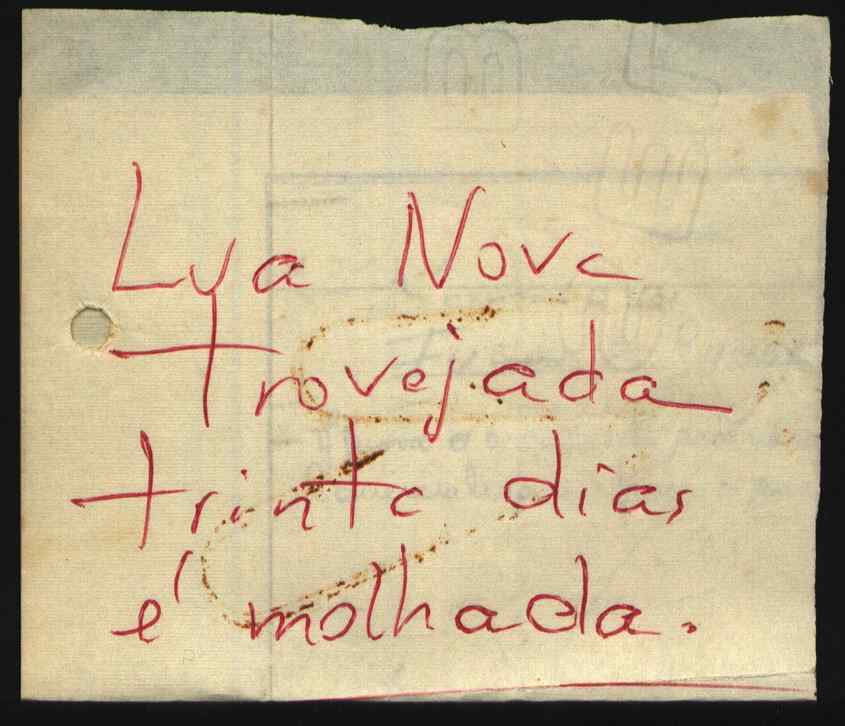 Lua Nova
Trovejada
trinta dias
é molhada.